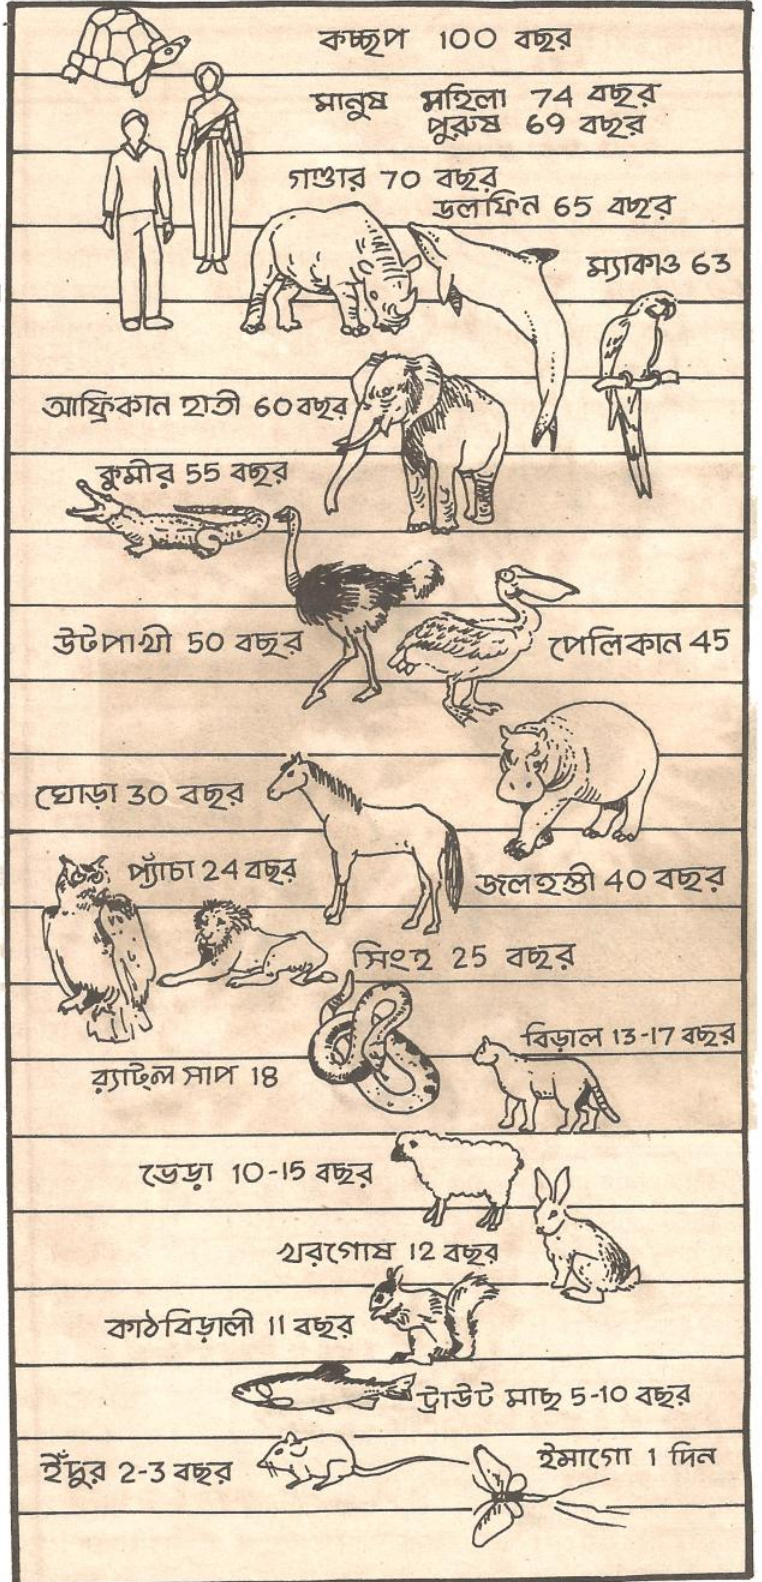 কচ্ছপ 100 বছর
মানুষ মহিলা 74 বছর
পুরুষ 69 বছর
গণ্ডার 70 বছর
ডলফিন 65 বছর
ম্যাকাও 63
আফ্রিকান হাতী 60 বছর
কুমীর 55 বছর
উটপাখী 50 বছর
পেলিকান 45
ঘোড়া 30 বছর
প্যাঁচা 24 বছর
জলহস্তী 40 বছর
সিংহ 25 বছর
বিড়াল 13-17 বছর
র‍্যাট্‌ল সাপ 18
ভেড়া 10-15 বছর
খরগোষ 12 বছর
কাঠবিড়ালী 11 বছর
ট্রাউট মাছ 5-10 বছর
ইঁদুর 2-3 বছর
ইমাগো 1 দিন